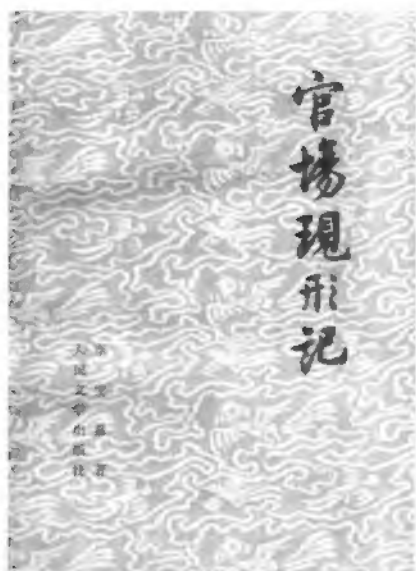 官場現形记
李宝嘉著
人民文学出版社